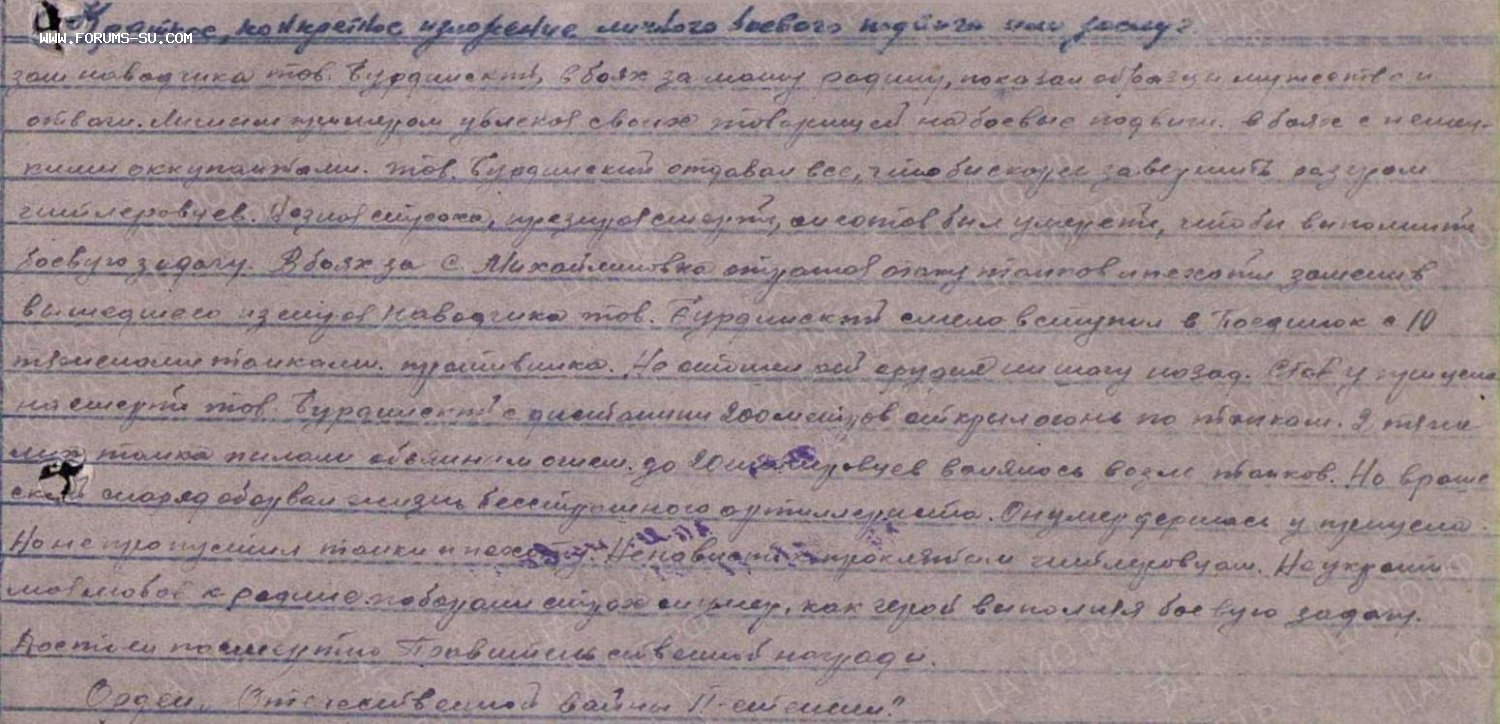 Краткое, конкретное изложение личного боевого подвига или заслуг.
WWW.FORUMS-SU.COM
зам наводчика тов. Бурдинский, в боях за нашу родину, показал образцы мужества и
отваги. Личным примером увлекая своих товарищей на боевые подвиги. в боях с немец-
кими оккупантами. тов. Бурдинский отдавал все, чтоби скорее завершить разгром
гитлеровцев. Незная страха, презирая смерть, он готов был умереть, чтоби выполнить
боевую задачу. В боях за с. Михайловка отражая атаку танков и пехоти заменив
вышедшего из строя наводчика тов. Бурдинский смело вступил в Поединок с 10
тяжелами танками. противника. Не отошел от орудия ни шагу назад. Став у прицела
насмерть тов. Бурдинский с дистанции 200 метров открыл огонь по танкам. 2 тяже
лих танка пилали обьяними огнем. до 20 гитлеровцев валялось возле танков. Но враже
ский снаряд оборвал жизнь бесстрашного артиллериста. Он умер держась у прицела.
Но не пропустил танки и пехоту. Ненависть к проклятим гитлеровцам. Неукроти
мая любов к родине побороли страх он умер, как герой выполняя боевую задачу.
Достоен посмертно Правительственной награди.
Орден „Отечественной войны II-степени"